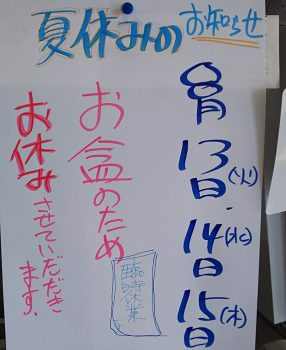 夏休みのお知らせ
8月
13日(火)
14日(水)
15日(木)
お盆のため
お休みさせていだだき
ます。
臨時休業